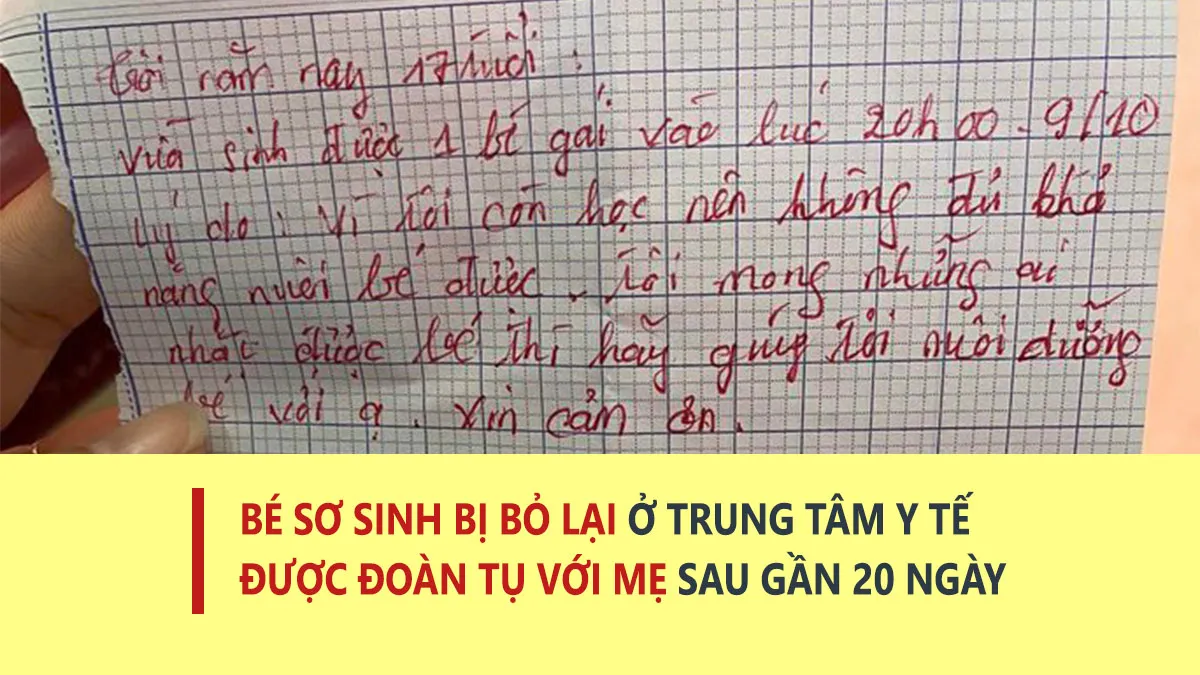 Tôi năm nay 17 tuổi :
vừa sinh được 1 bé gái vào lúc 20h00 - 9/10
Lý do : Vì tôi còn học nên không đủ khả
năng nuôi bé được. Tôi mong những ai
nhặt được bé thì hãy giúp tôi nuôi dưỡng
bé với ạ. Xin cảm ơn.
BÉ SƠ SINH BỊ BỎ LẠI Ở TRUNG TÂM Y TẾ
ĐƯỢC ĐOÀN TỤ VỚI MẸ SAU GẦN 20 NGÀY